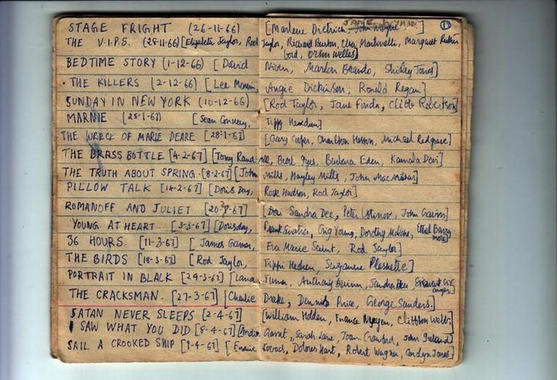 STAGE FRIGHT (26-11-66) [Marlene Dietrich, Jane Wyman]
THE V.I.P.S. (28-11-66) [Elizabeth Taylor, Rod Taylor, Richard Burton, Elsa Martinelli, Margaret Rutherford, Orson Welles]
BEDTIME STORY (1-12-66) [David Niven, Marlon Brando, Shirley Jones]
THE KILLERS (2-12-66) [Lee Marvin, Angie Dickinson, Ronald Regan]
SUNDAY IN NEW YORK (10-12-66) [Rod Taylor, Jane Fonda, Cliff Robertson]
MARNIE (25-1-67) [Sean Connery, Tippi Hendren]
THE WRECK OF MARIE DEARE (28-1-67) [Gary Cooper, Charlton Heston, Michael Redgrave]
THE BRASS BOTTLE [4-2-67] [Tony Randall, Burl Ives, Barbara Eden, Kamala Devi]
THE TRUTH ABOUT SPRING (8-2-67) [John Mills, Hayley Mills, John MacMillan]
PILLOW TALK (14-2-67) [Doris Day, Rock Hudson, Rod Taylor]
ROMANOFF AND JULIET (20-2-67) Sandra Dee, Peter Ustinov, John Gavin]
YOUNG AT HEART (3-3-67) [Doris Day, Frank Sinatra, Gig Young, Dorothy Malone, Ethel Barrymore]
36 HOURS [11-3-67] [James Garner, Eva Marie Saint, Rod Taylor]
THE BIRDS (18-3-67) [Rod Taylor, Tippi Hedren, Suzanne Pleshette]
PORTRAIT IN BLACK [24-3-67] [Lana Turner, Anthony Quinn, Sandra Dee,
THE CRACKSMAN. [27-3-67] [Charlie Drake, Dennis Price, George Sanders.]
SATAN NEVER SLEEPS (2-4-67) [William Holden, France Nuyen, Clifton Webb]
I SAW WHAT YOU DID (8-4-67) Garret, Sarah Lane, Joan Crawford, John Ireland
SAIL A CROOKED SHIP (9-4-67) [Ernie Kovacs, Dolores Hart, Robert Wagner, Carolyn Jones]